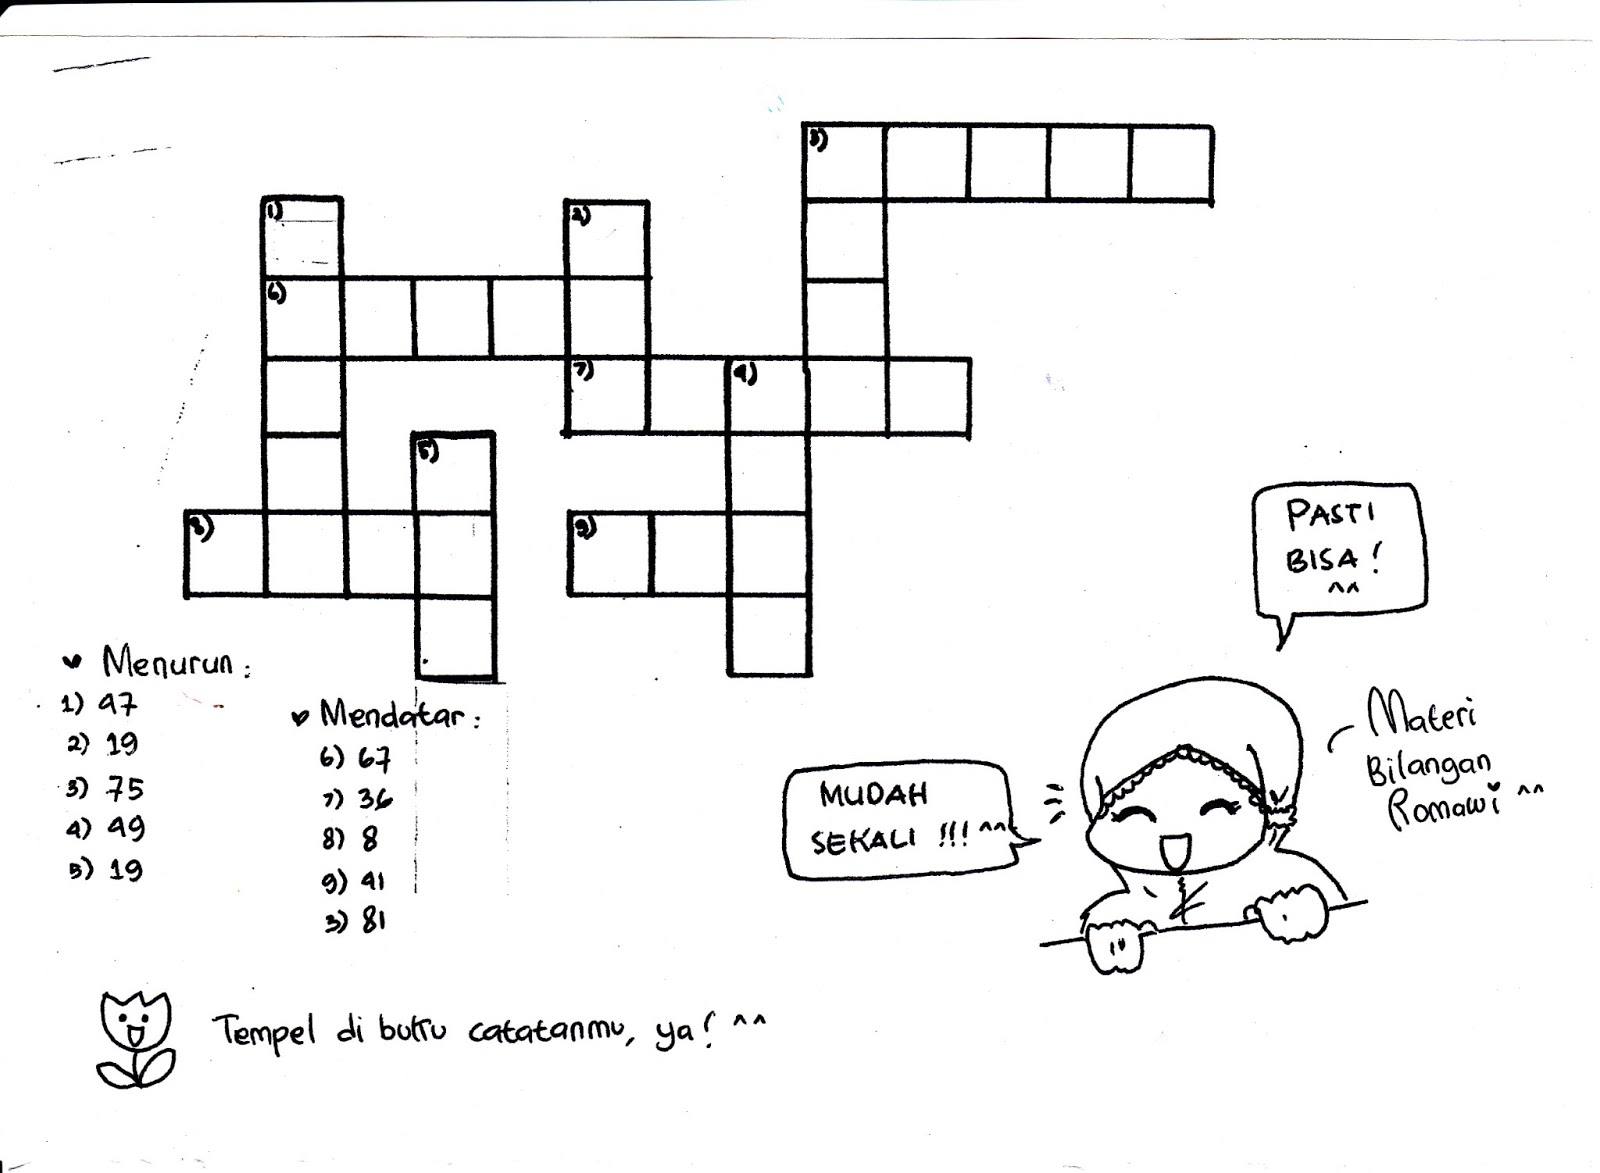 3)
1)
2)
6)
7)
4)
5)
8)
9)
PASTI
BISA!
^^
♥ Menurun:
1) 47
2) 19
3) 75
4) 49
5) 19
♥ Mendatar:
6) 67
7) 36
8) 8
9) 41
3) 81
MUDAH
SEKALI !!! ^^
Materi
Bilangan
Romawi ^^
Tempel di buku catatanmu, ya! ^^